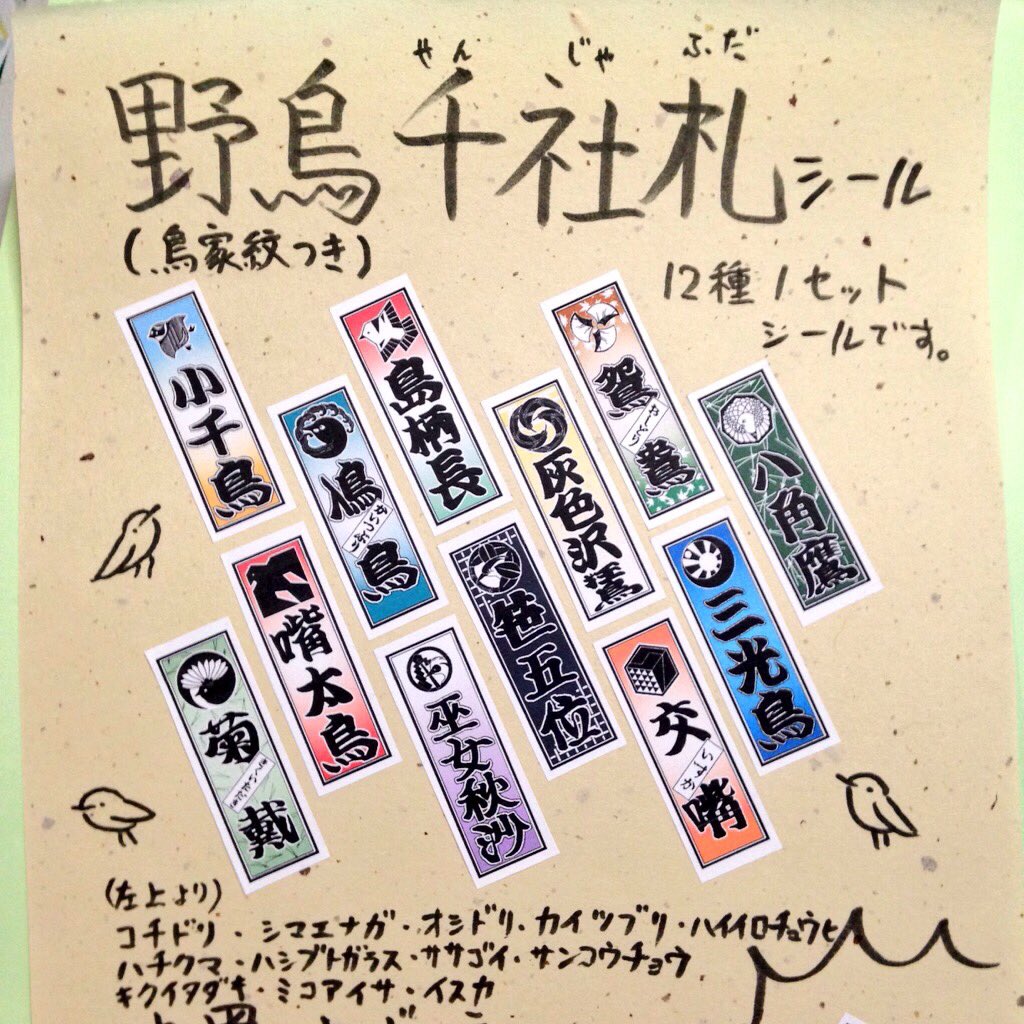 やん じゃ ふだ
野鳥千社札シール
(鳥家紋つき)
12種1セット
シールです。
小千鳥
島柄長
鴛おしどり鴦
鳰かいつぶり鳥
灰色沢鵟
八角鷹
嘴太烏
笹五位
三光鳥
菊きくいただき戴
巫女秋沙
交いすか嘴
(左上より)
コチドリ・シマエナガ・オシドリ・カイツブリ・ハイイロチュウヒ
ハチクマ・ハシブトガラス・ササゴイ・サンコウチョウ
キクイタダキ・ミコアイサ・イスカ